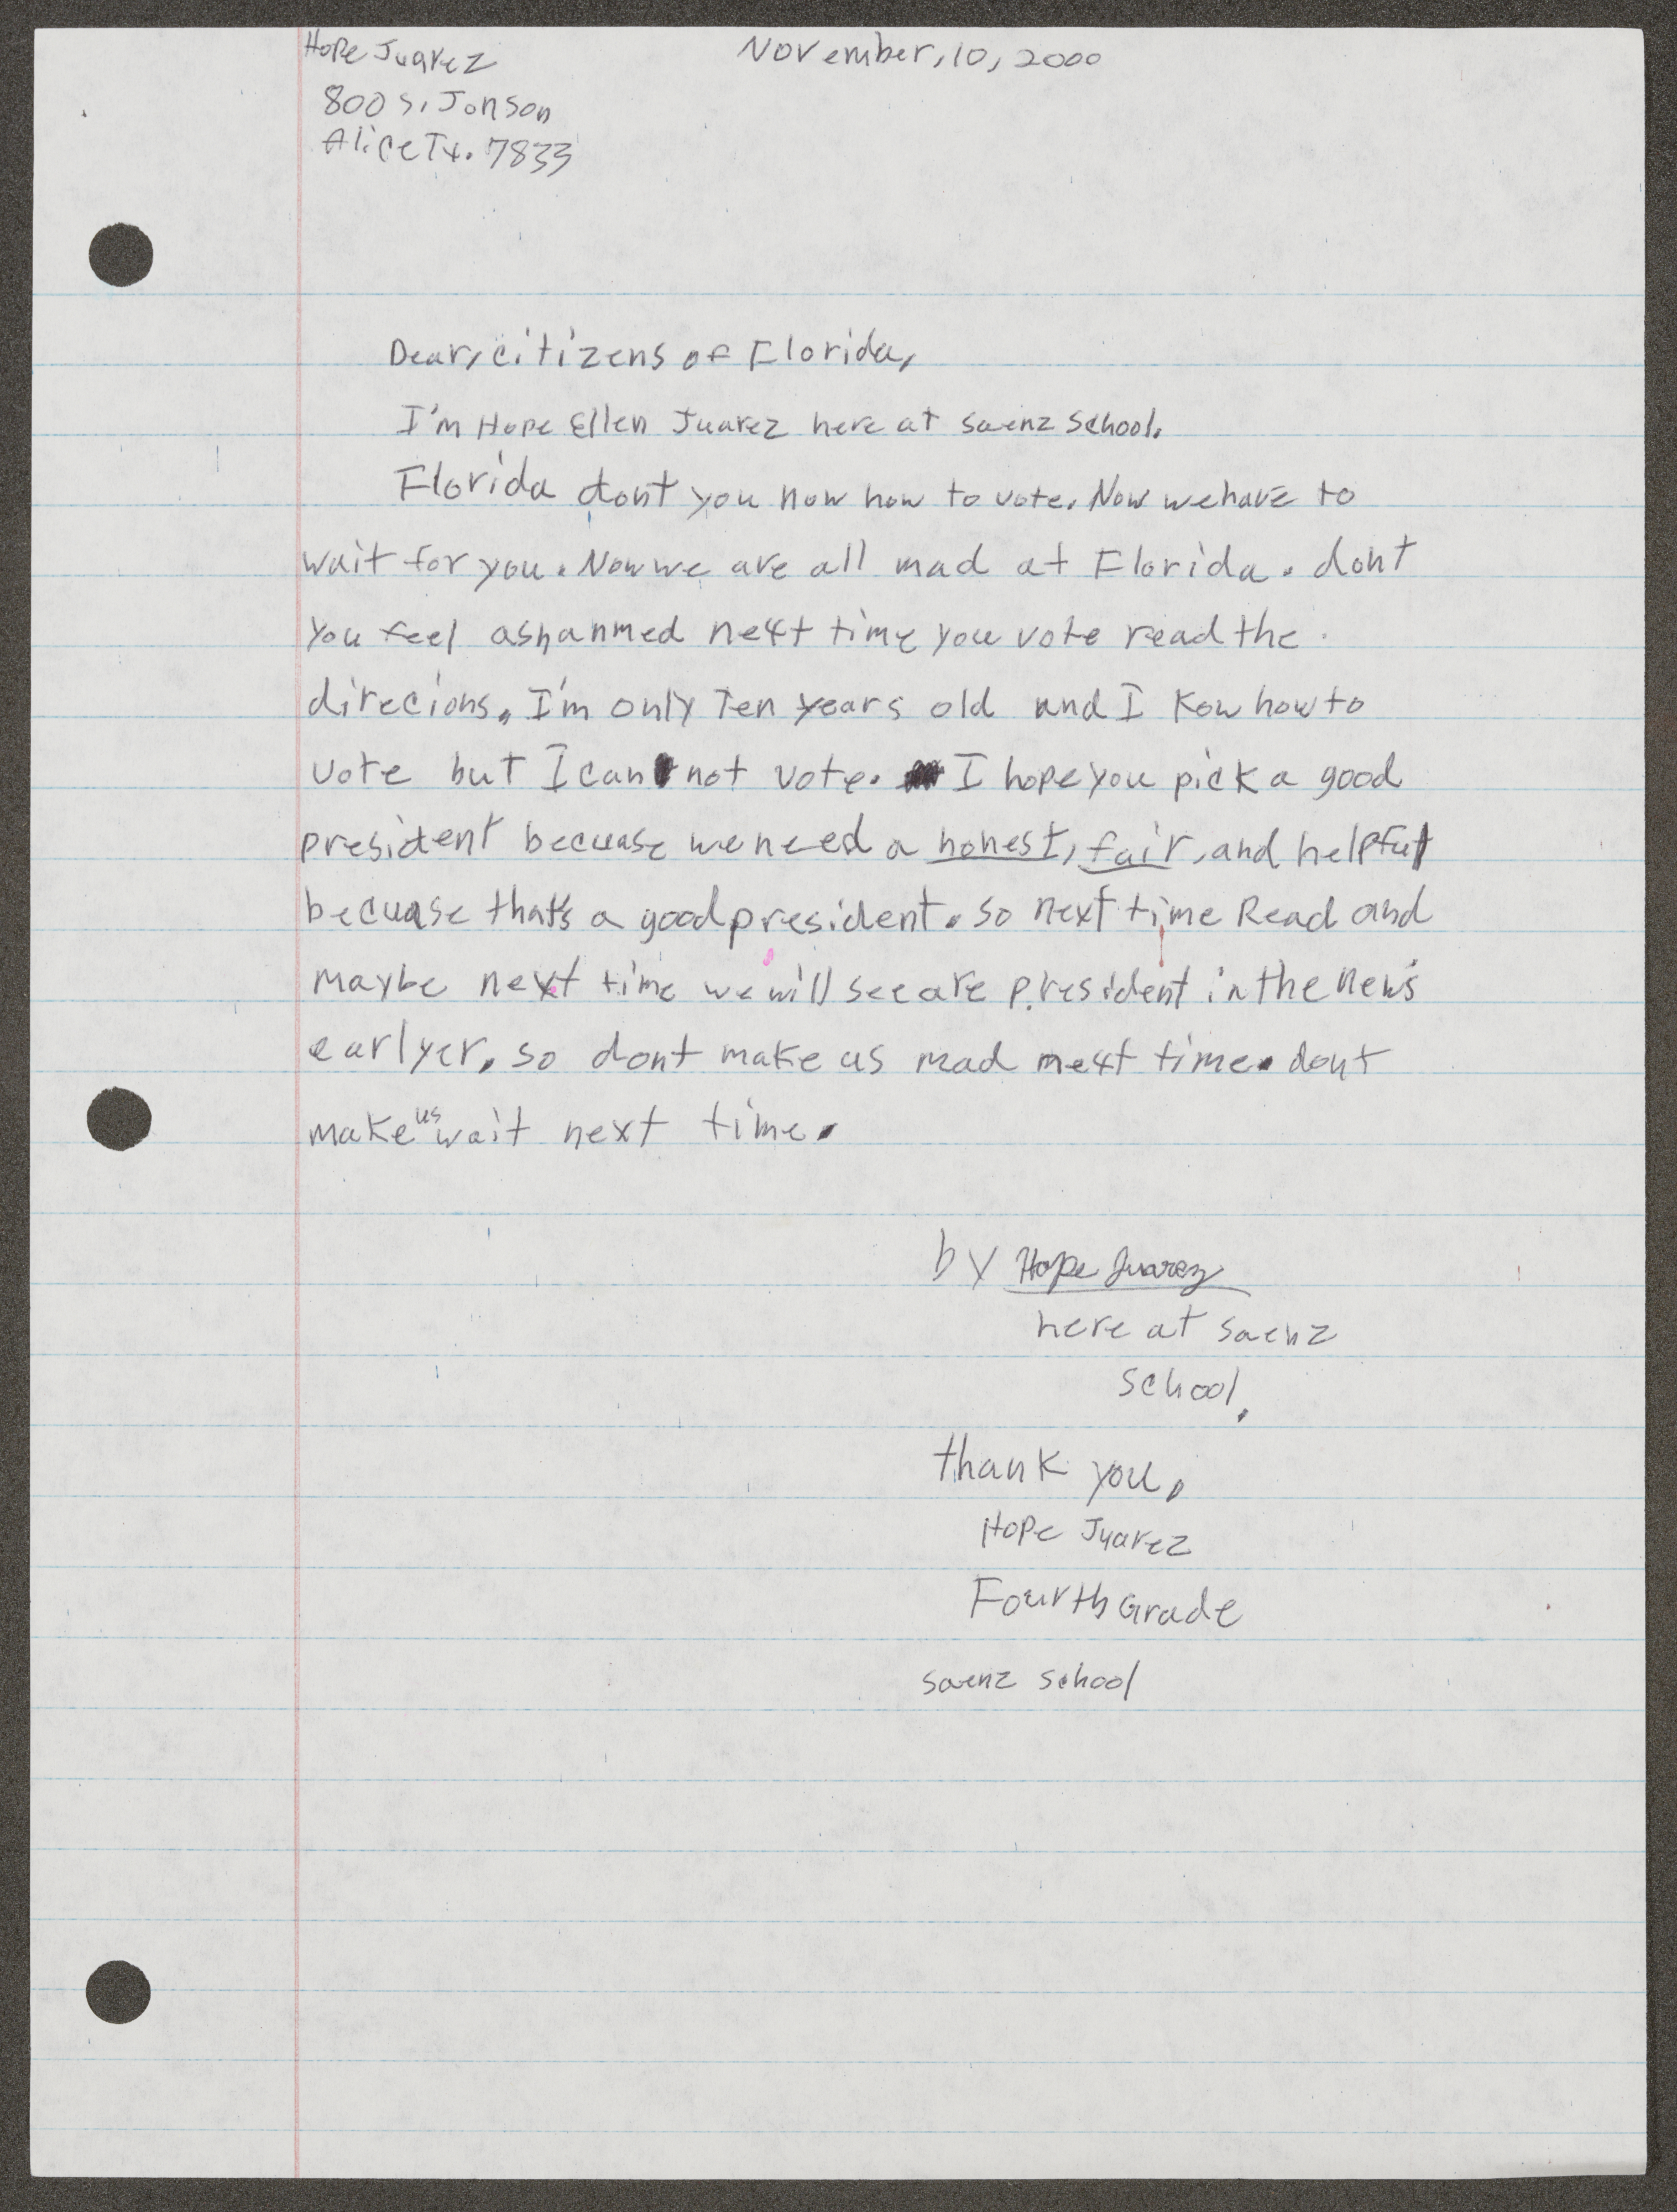 Hope Juarez November, 10, 2000
800 S. Jonson
Alice Tx. 7833
Dear, citizens of Florida,
I'm Hope Ellen Juarez here at saenz school.
Florida dont you now how to vote. Now we have to
wait for you. Now we are all mad at Florida. dont
you feel ashanmed next time you vote read the
direcions. I'm only Ten years old and I Kow how to
vote but I can not vote. I hope you pick a good
president becuase we need a honest, fair, and helpful
becuase that's a good president. so next time Read and
maybe next time we will see are president in the news
earlyer. so dont make us mad next time. dont
make us wait next time.
by Hope Juarez
here at saenz
school.
thank you,
Hope Juarez
Fourth Grade
saenz school